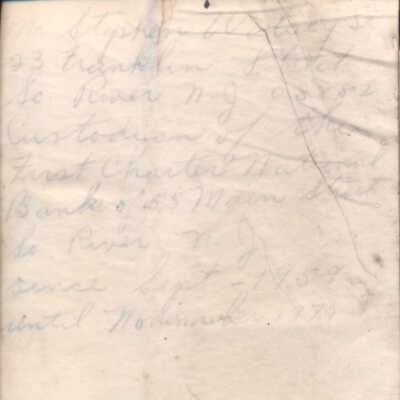 Mr Stephen Sr
23 Franklin Street
So River N.J 08882
Custodian of the
First Charter National
Bank of 55 Main Street
So River N.J
since Sept - 1959
until November